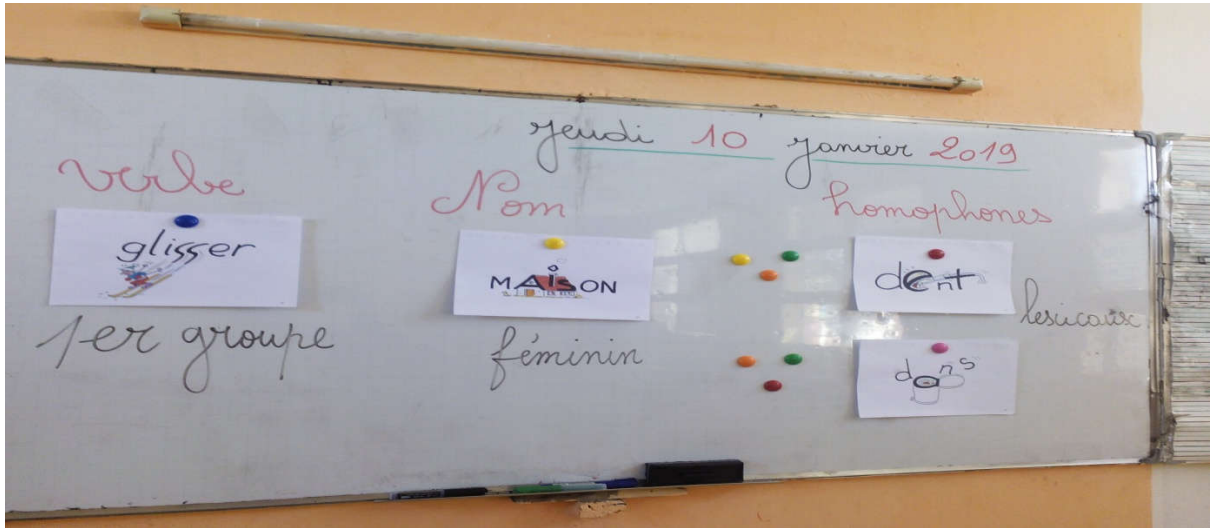 jeudi 10 janvier 2019
verbe
glisser
1er groupe
Nom
MAiSON
féminin
homophones
dent
lexicaux
dans